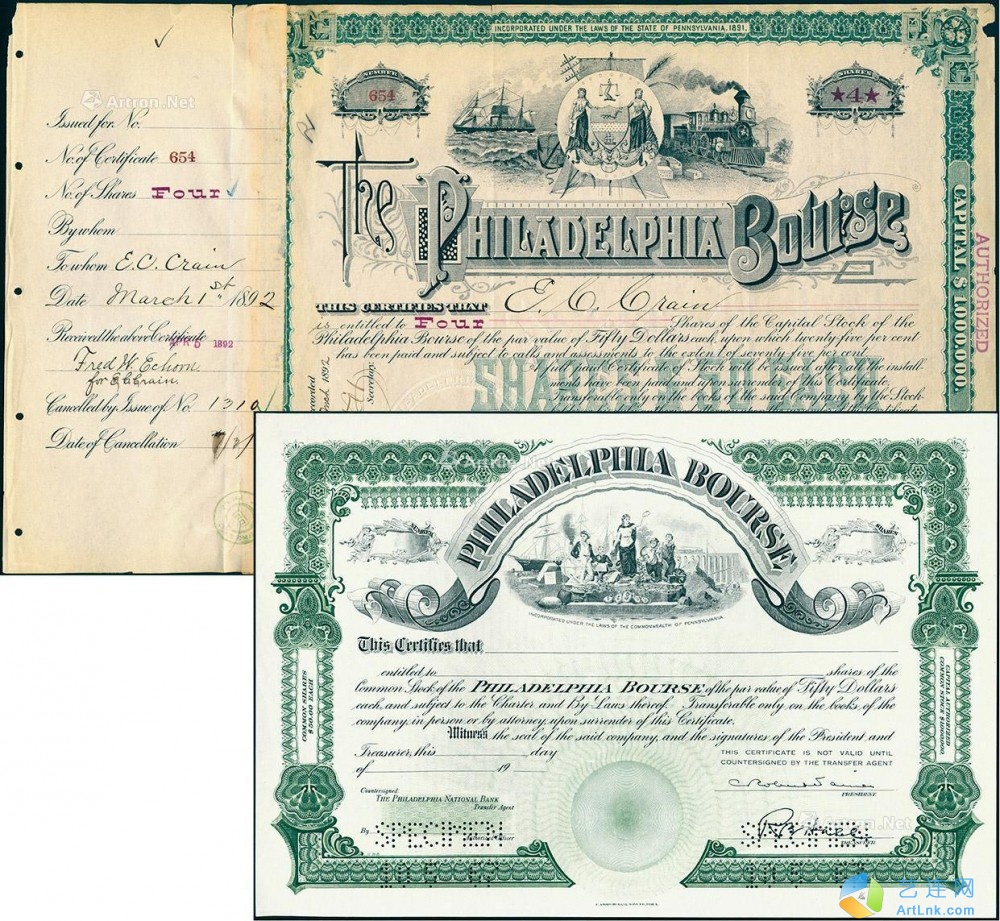 Artron.Net
Issued for No.
No. of Certificate 654
No. of Shares Four
By whom
To whom E. C. Crain
Date March 1st 1892
Received the above Certificate
APR 5 1892
Fred W.
for E C Crain.
Cancelled by Issue of No. 1310
Date of Cancellation
INCORPORATED UNDER THE LAWS OF THE STATE OF PENNSYLVANIA, 1891.
NUMBER
654
SHARES
★4★
The Philadelphia Bourse
AUTHORIZED
CAPITAL $1,000,000
THIS CERTIFIES THAT E. C. Crain
is entitled to Four Shares of the Capital Stock of the
Philadelphia Bourse of the par value of Fifty Dollars each, upon which twenty five per cent
has been paid and subject to calls and assessments to the extent of seventy five per cent.
A full paid Certificate of Stock will be issued after all the install-
ments have been paid and upon surrender of this Certificate.
Transferable only on the books of the said Company by the Stock-
SHARES
1892
Secretary
PHILADELPHIA BOURSE
NUMBER
SHARES
INCORPORATED UNDER THE LAWS OF THE COMMONWEALTH OF PENNSYLVANIA.
This Certifies that
entitled to shares of the
Common Stock of the PHILADELPHIA BOURSE of the par value of Fifty Dollars
each, and subject to the Charter and By Laws thereof. Transferable only on the books of the
company in person or by attorney upon surrender of this Certificate.
Witness the seal of the said company, and the signatures of the President and
Treasurer, this day
of 19
THIS CERTIFICATE IS NOT VALID UNTIL
COUNTERSIGNED BY THE TRANSFER AGENT
PRESIDENT
Countersigned
THE PHILADELPHIA NATIONAL BANK
Transfer Agent
By SPECIMEN
SPECIMEN
TREASURER
COMMON SHARES
$50.00 EACH
CAPITAL AUTHORIZED
Artron.Net
艺连网
ArtLnk.com